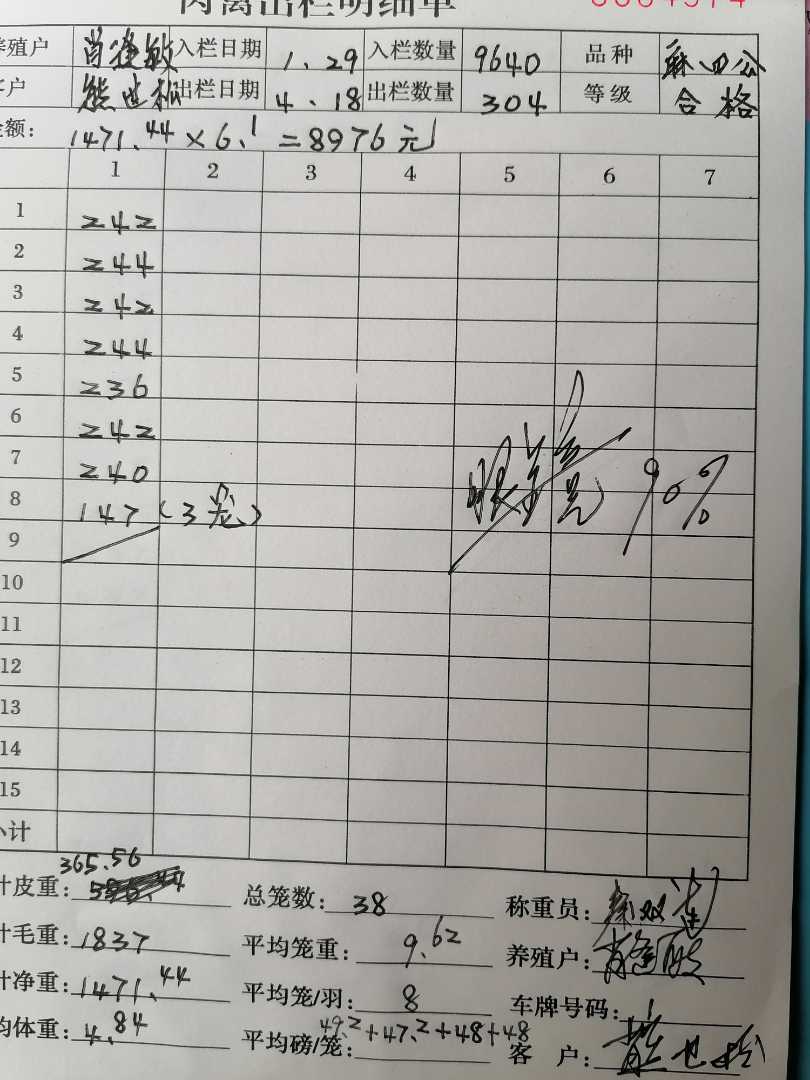 肉禽出栏明细单
养殖户 肖逢敏 入栏日期 1.29 入栏数量 9640 品种 麻四公
客户 熊世松 出栏日期 4.18 出栏数量 304 等级 合格
金额: 1471.44×6.1=8976元
1 2 3 4 5 6 7
1 242
2 244
3 242
4 244
5 236
6 242
7 240
8 147(3笼)
9
10
11
12
13
14
15
小计
90%
365.56
计皮重: 总笼数: 38 称重员:
计毛重: 1837 平均笼重: 9.62 养殖户:
计净重: 1471.44 平均笼/羽: 8 车牌号码: 1
均体重: 4.84 平均磅/笼: 49.2+47.2+48+48 客户: